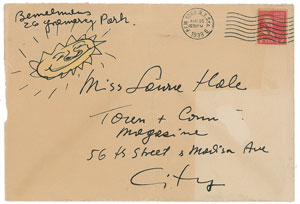 Bemelmans
26 Gramercy Park.
Miss Laurie Hale
Town + Coun
Magazine
56 th Street & Madison Ave
City